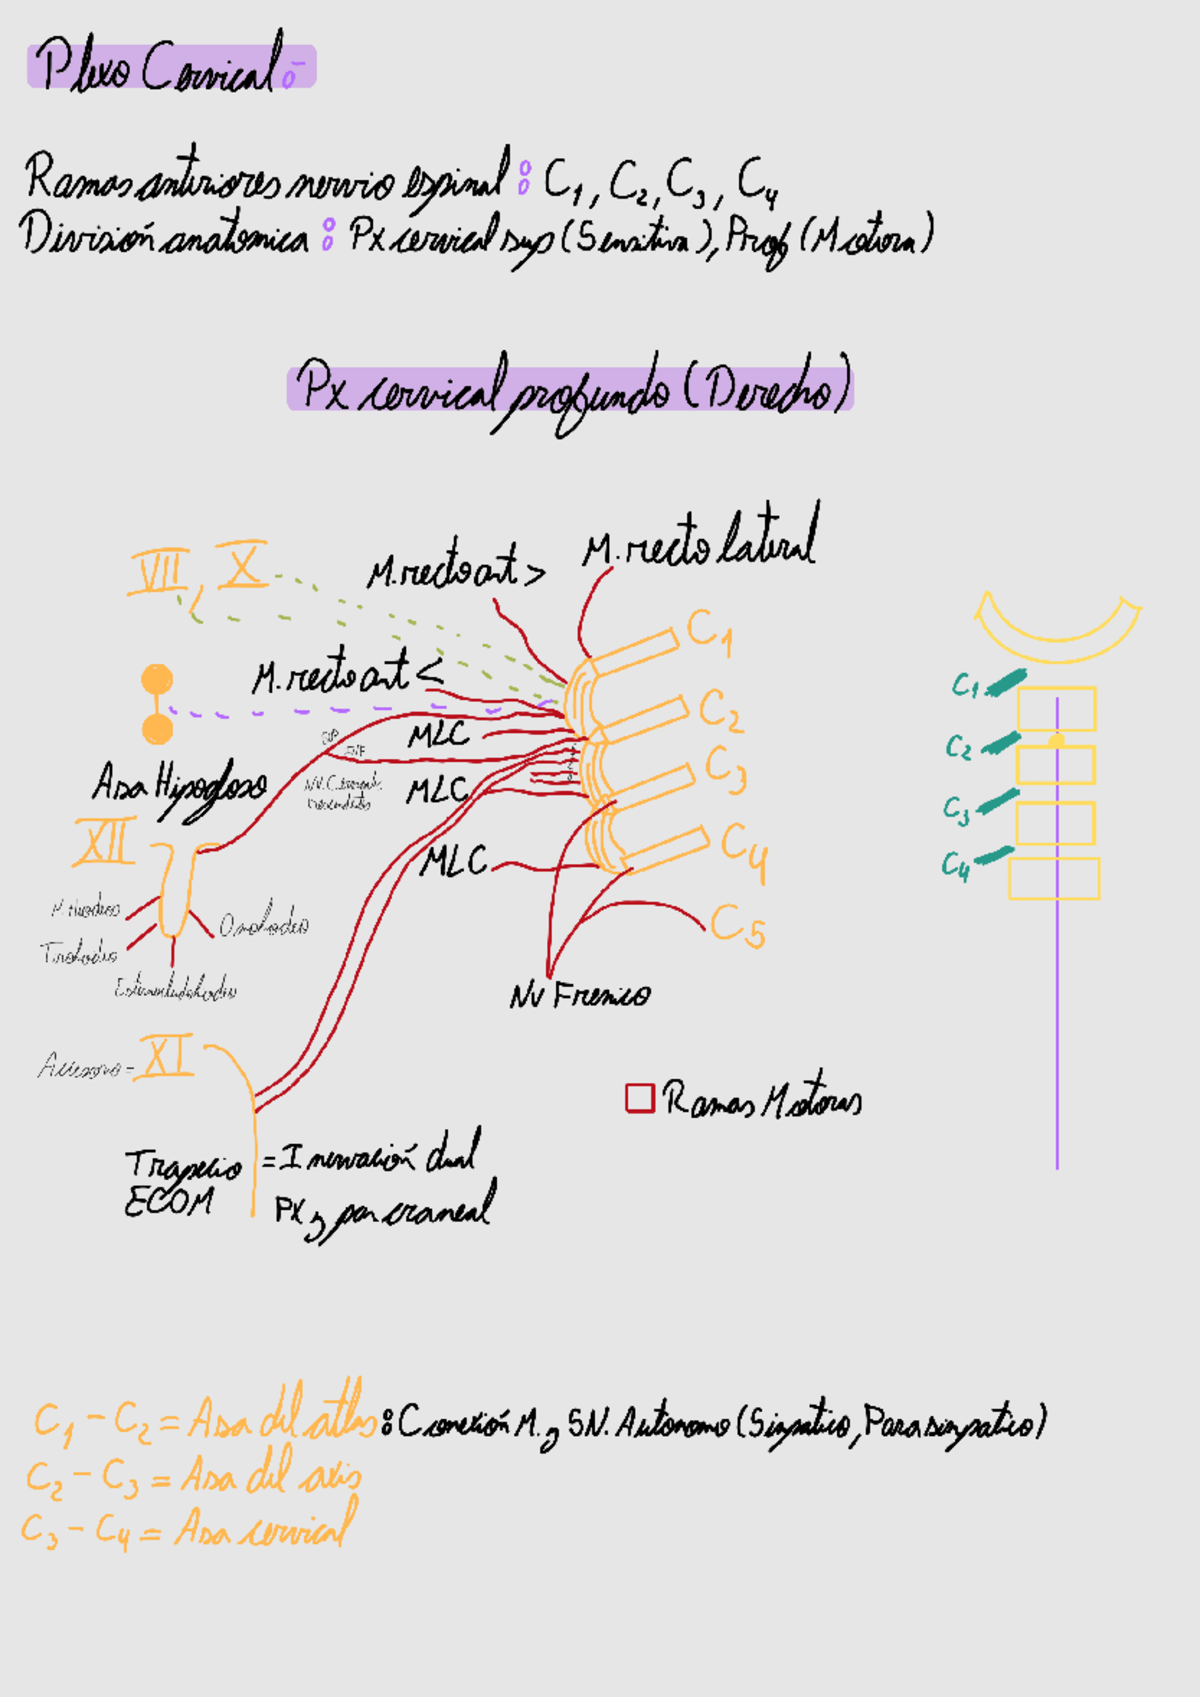 Plexo Cervical:
Ramas anteriores nervio espinal: C1, C2, C3, C4
División anatomica: Px cervical sup (Sensitiva), Prof (Motora)
Px cervical profundo (Derecho)
VII, X
M. recto ant >
M. recto lateral
C1
M. recto ant <
C2
MLC
C3
Asa Hipogloso
MLC
XII
MLC
C4
C5
M. Hiodeo
Omohodeo
Tirohodeo
Nv Frenico
Accesorio = XI
Ramas Motoras
Trapecio = Inervación dual
ECOM Px y par craneal
C1
C2
C3
C4
C1 - C2 = Asa del atlas: Conexión M. y SN. Autonomo (Simpatico, Parasimpatico)
C2 - C3 = Asa del axis
C3 - C4 = Asa cervical